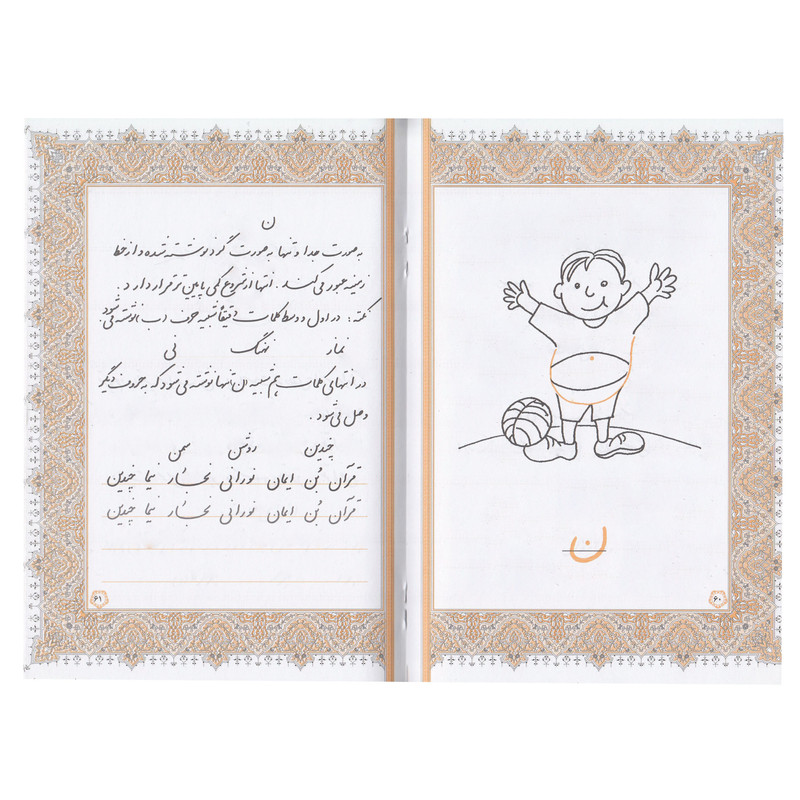 ن
۶۰
ن
به صورت جدا و تنها به صورت گرد نوشته شده و از خط
زمینه عبور می کند . انتها از شروع کمی پایین تر قرار دارد .
نکته : در اول و وسط کلمات دقیقاً شبیه حرف (ب) نوشته می شود.
نماز نهنگ نی
در انتهای کلمات هم شبیه (ن) تنها نوشته می شود که به حروف دیگر
وصل می شود .
چندین روشن سمن
قرآن بُن ایمان نورانی نجّار نیما چندین
قرآن بُن ایمان نورانی نجّار نیما چندین
۶۱